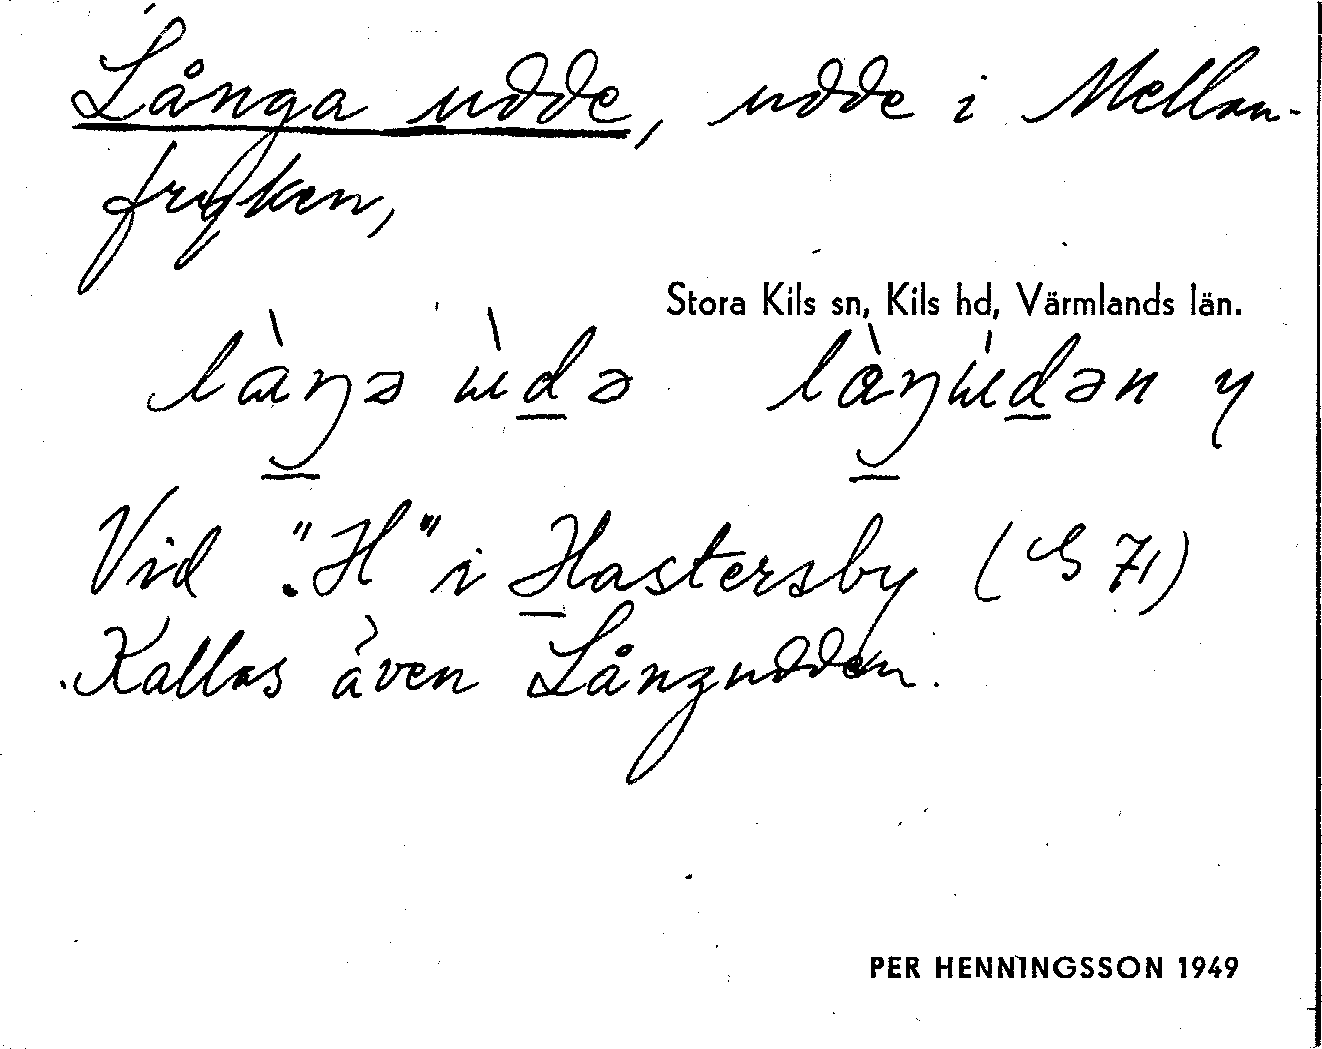 Långa udde, udde i Mellan-
fryken,
Stora Kils sn, Kils hd, Värmlands län.
Vid "H" i Hastersby
Kallas även Långudden.
PER HENNINGSSON 1949